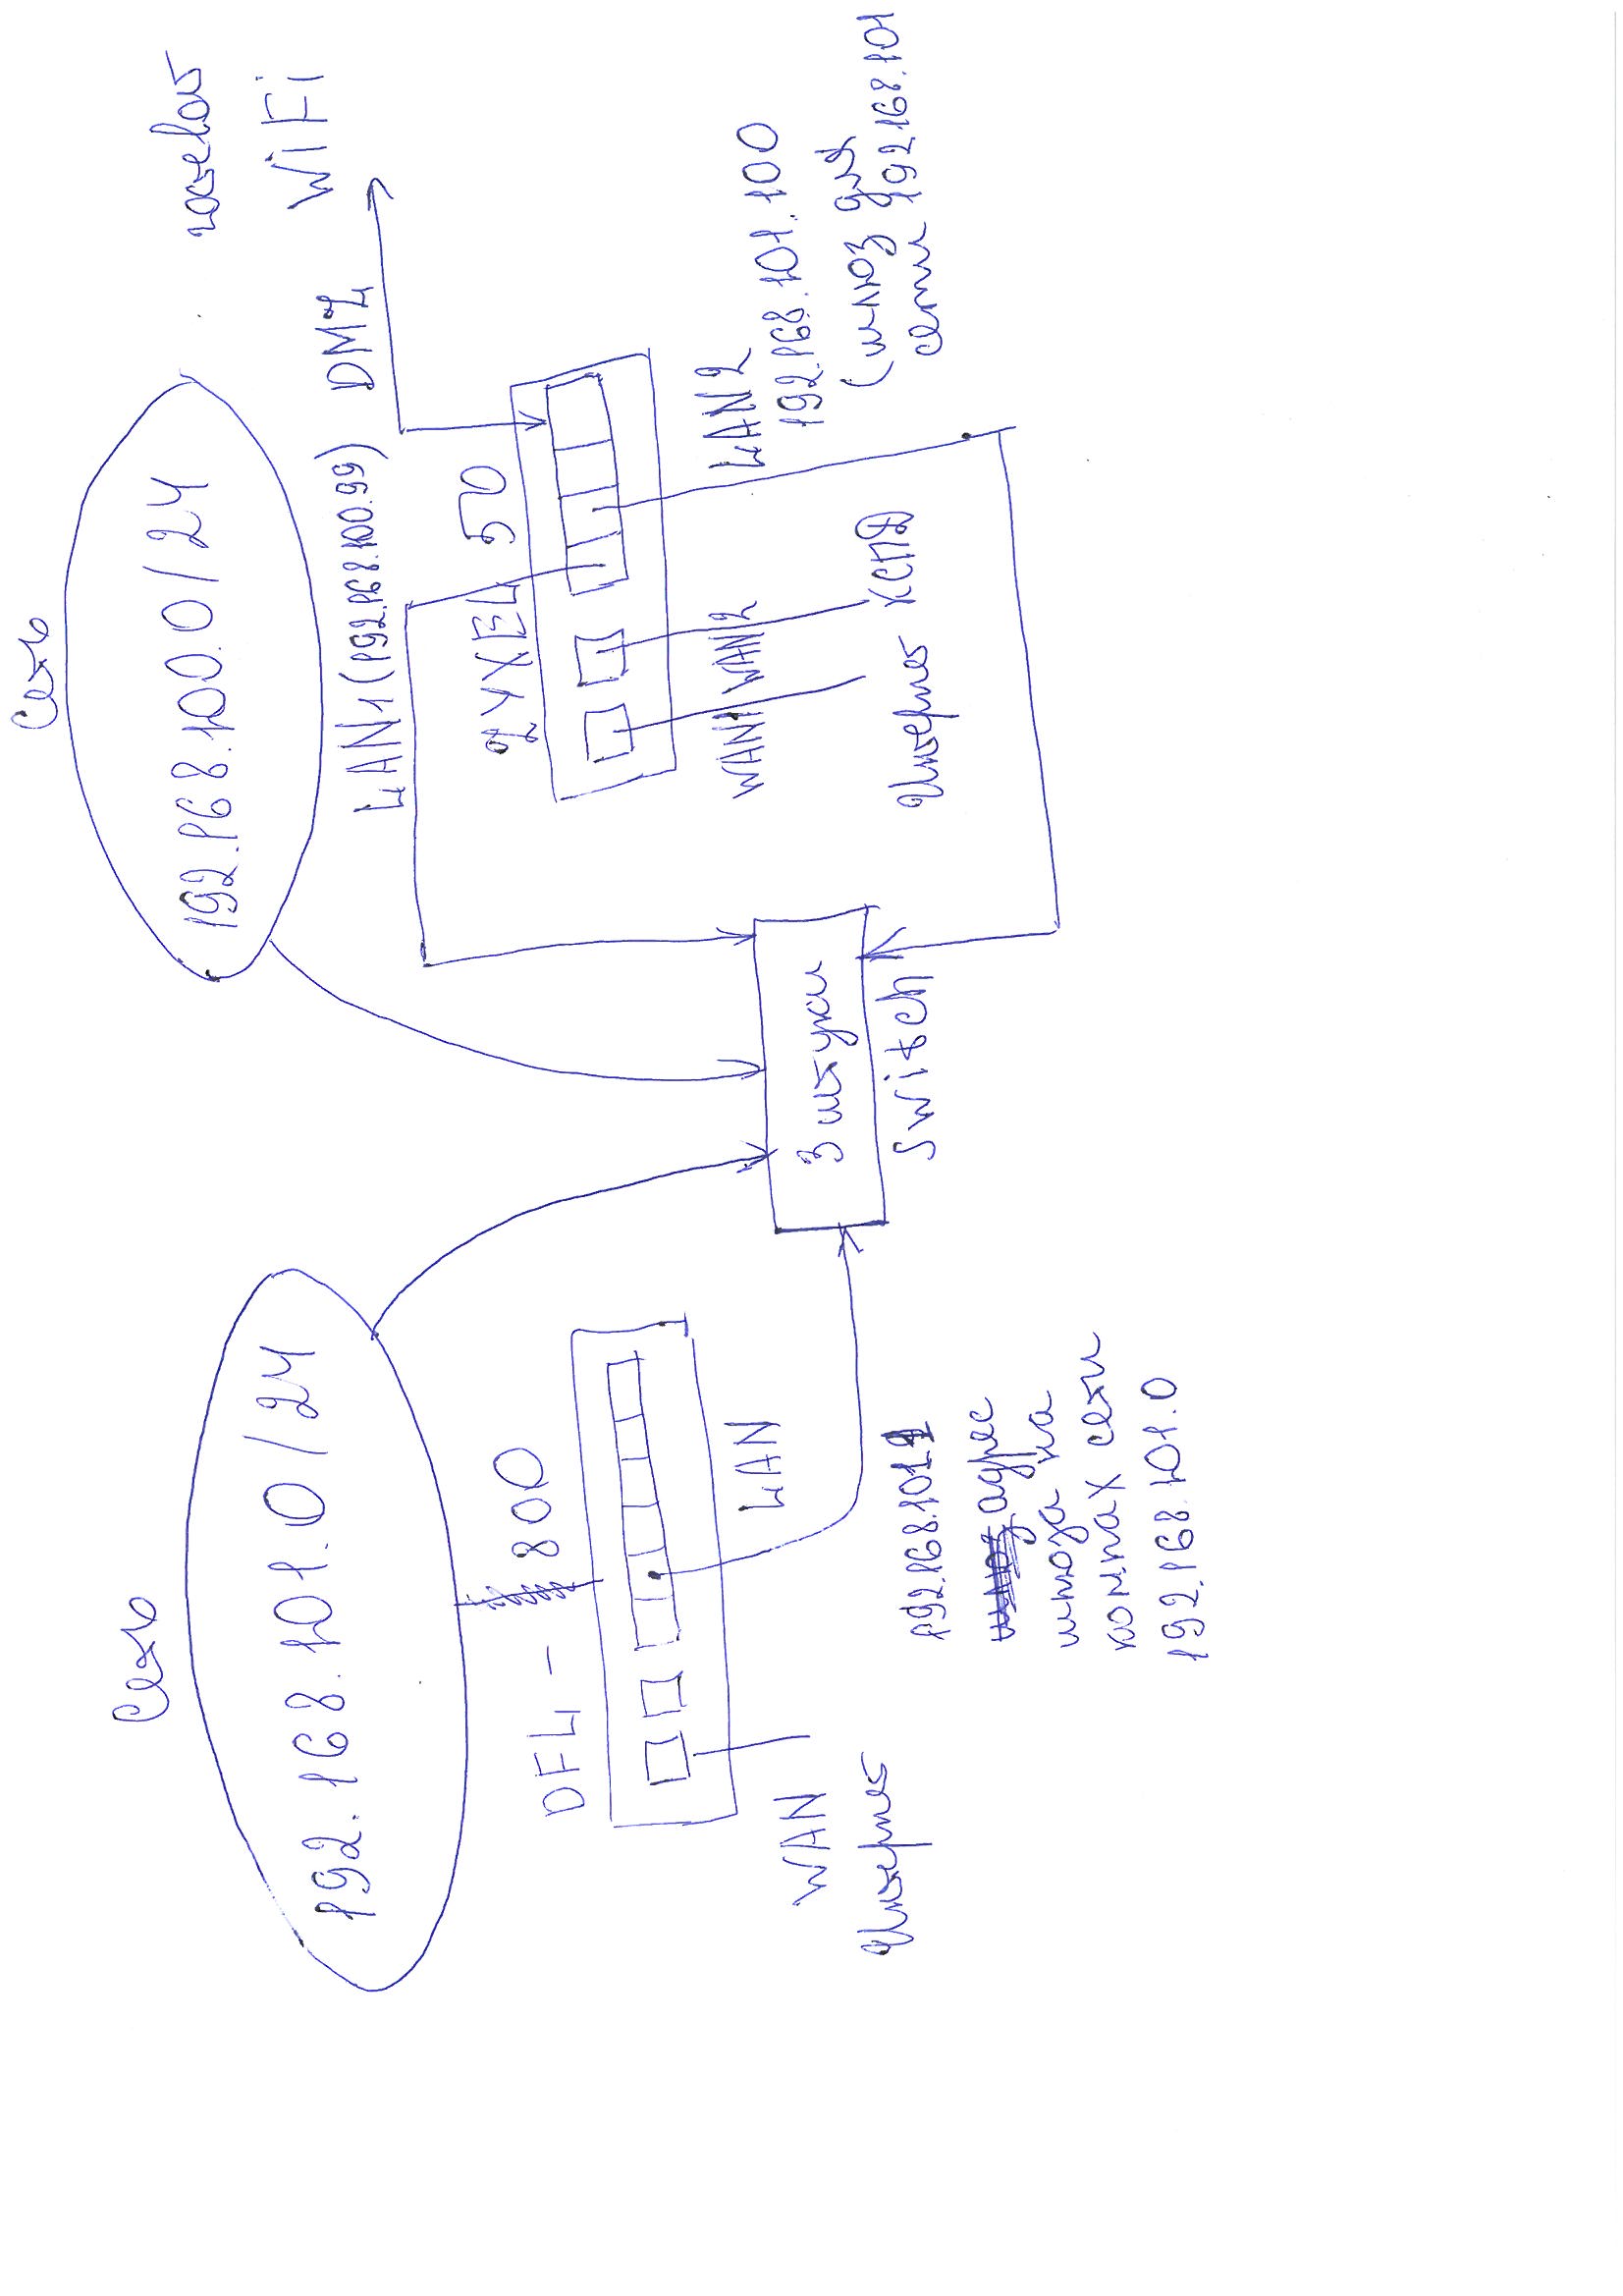 Сеть
192.168.101.0/24
DFL-800
WAN
Интернет
LAN
192.168.101.1
адрес
шлюза на
компах сети
192.168.101.0
3 штуки
Switch
Сеть
192.168.100.0/24
LAN1 (192.168.100.99)
DMZ
гостевой
WiFi
ZYXEL 570
WAN1
WAN2
Интернет
КСПД
LAN2
192.168.101.100
(шлюз для
сети 192.168.101